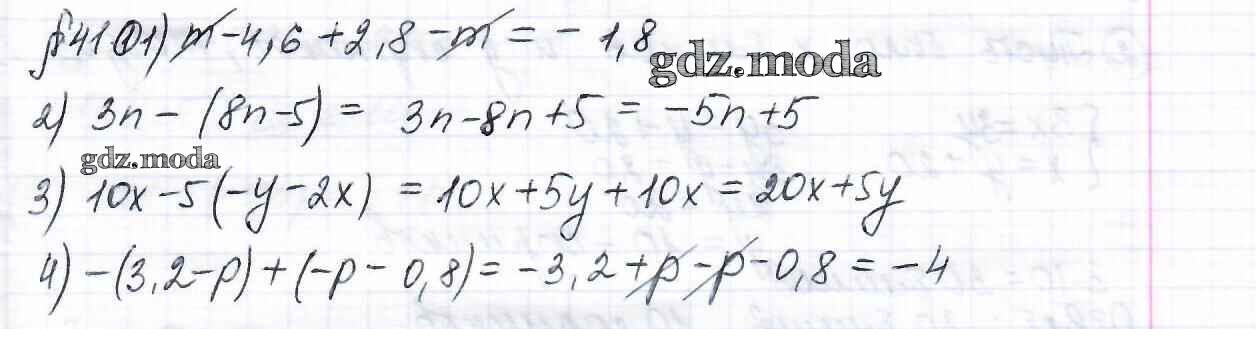 §41 ① 1) m - 4,6 + 2,8 - m = - 1,8
gdz.moda
2) 3n - (8n - 5) = 3n - 8n + 5 = -5n + 5
gdz.moda
3) 10x - 5(-y - 2x) = 10x + 5y + 10x = 20x + 5y
4) -(3,2 - p) + (-p - 0,8) = -3,2 + p - p - 0,8 = -4